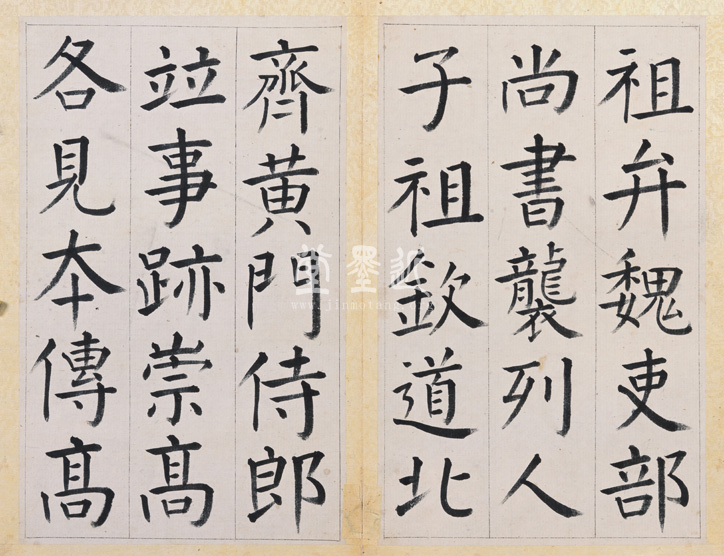 祖弁魏吏部
尚書襲列人
子祖欽道北
齊黄門侍郎
竝事跡崇高
各見本傳高
www.jinmotang